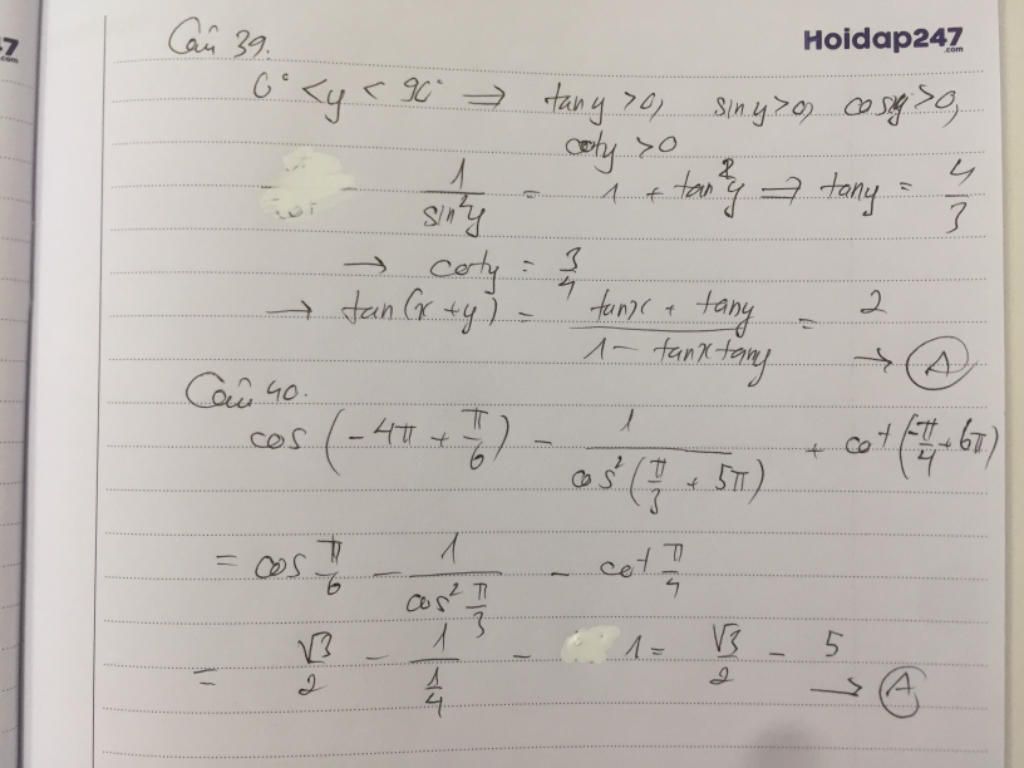 Câu 39.
Hoidap247
.com
0° < y < 90° ⇒ tan y > 0, sin y > 0, cos y > 0,
cot y > 0
1/sin²y = 1 + tan²y ⇒ tan y = 4/3
→ cot y = 3/4
→ tan(x + y) = (tan x + tan y)/(1 - tan x tan y) = 2 → A
Câu 40.
cos(-4π + π/6) - 1/cos²(π/3 + 5π) + cot(-π/4 + 6π)
= cos π/6 - 1/cos² π/3 - cot π/4
= √3/2 - 1/(1/4) - 1 = √3/2 - 5 → A